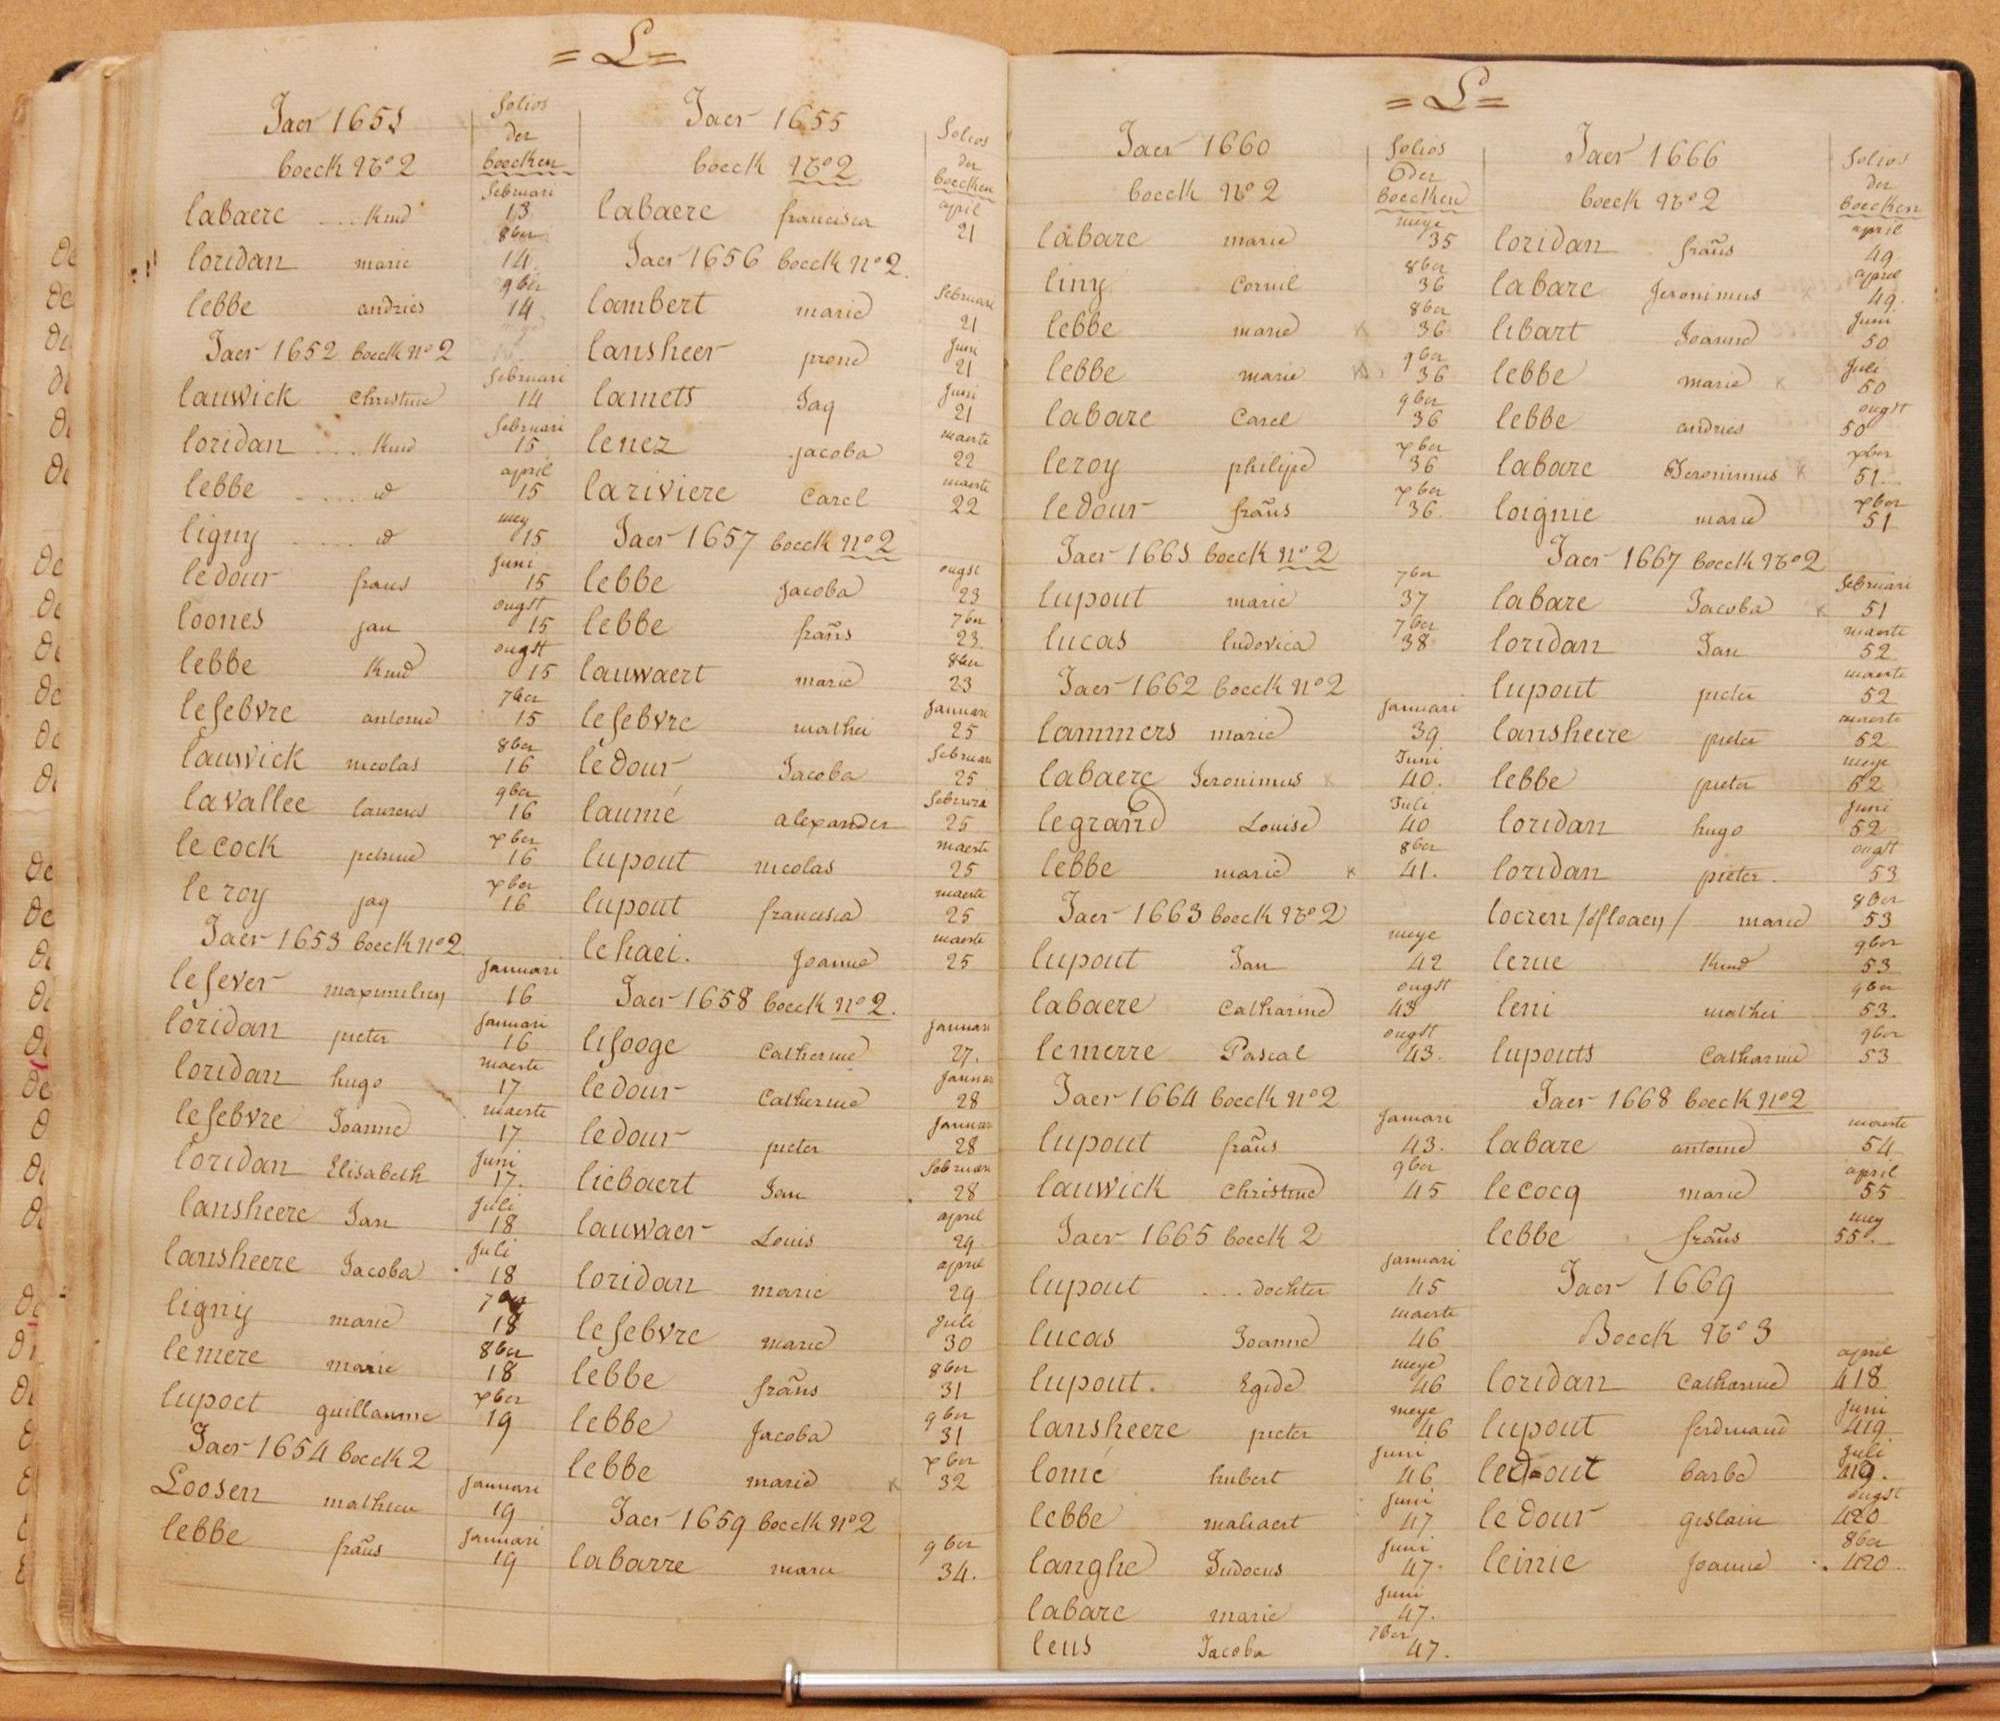 = L =
Jaer 1651
boeck No 2
folios
der
boecken
labaere ... kind februari 13
loridan marie 8ber 14
lebbe andries 9ber 14
Jaer 1652 boeck no 2
lauwick christine februari 14
loridan ... kind februari 15
lebbe ..... id april 15
ligny ..... id mey 15
ledour frans Juni 15
loones jan ougst 15
lebbe kind ougst 15
lefebvre antoine 7ber 15
lauwick nicolas 8ber 16
lavallee laurens 9ber 16
le cock petrus xber 16
le roy jaq xber 16
Jaer 1653 boeck no 2
lefever maximilien Januari 16
loridan pieter Januari 16
loridan hugo maerte 17
lefebvre Joanne maerte 17
loridan Elisabeth Juni 17.
lansheere Jan Juli 18
lansheere Jacoba Juli 18
ligny marie 7ber 18
lemere marie 8ber 18
lupoct guillaume xber 19
Jaer 1654 boeck 2
Loosen mathieu Januari 19
lebbe frans Januari 19
Jaer 1655
boeck No 2
folios
der
boecken
labaere francisca april 21
Jaer 1656 boeck no 2.
lambert marie februari 21
lansheer prone Juni 21
lamets Jaq Juni 21
lenez Jacoba maerte 22
lariviere Carel maerte 22
Jaer 1657 boeck no 2
lebbe Jacoba ougst 23
lebbe frans 7ber 23.
lauwaert marie 8ber 23
lefebvre mathei Januari 25
ledour Jacoba februari 25
laumé alexander februari 25
lupout nicolas maerte 25
lupout francisca maerte 25
lehaei. Joanne maerte 25
Jaer 1658 boeck no 2.
lifooge Catherine Januari 27.
ledour Catherine Januari 28
ledour pieter Januari 28
liebaert Jan februari 28
lauwaer Louis april 29
loridan marie april 29
lefebvre marie Juli 30
lebbe frans 8ber 31
lebbe Jacoba 9ber 31
lebbe marie x xber 32
Jaer 1659 boeck no 2
labarre marie 9ber 34.
= L =
Jaer 1660
boeck No 2
folios
der
boecken
labare marie meye 35
liny Cornil 8ber 36
lebbe marie x 8ber 36
lebbe marie x 9ber 36
labare Carel 9ber 36
leroy philipe xber 36
ledour frans xber 36.
Jaer 1661 boeck no 2
lupout marie 7ber 37
lucas ludovica 7ber 38
Jaer 1662 boeck no 2
lammers marie Januari 39
labaere Jeronimus x Juni 40.
legrand Louise Juli 40
lebbe marie x 8ber 41.
Jaer 1663 boeck No 2
lupout Jan meye 42
labaere Catharine ougst 43
lemerre Pascal ougst 43.
Jaer 1664 boeck no 2
lupout frans Januari 43.
lauwick Christine 9ber 45
Jaer 1665 boeck 2
lupout ... dochter Januari 45
lucas Joanne maerte 46
lupout. Egide meye 46
lansheere pieter meye 46
lomé hubert Juni 46
lebbe maliaert Juni 47
langhe Judocus Juni 47.
labare marie Juni 47.
leus Jacoba 7ber 47.
Jaer 1666
boeck No 2
folios
der
boecken
loridan frans april 49
labare Jeronimus x april 49.
libart Joanne Juni 50
lebbe marie x Juli 50
lebbe andries ougst 50
labare Jeronimus x xber 51.
loignie marie xber 51
Jaer 1667 boeck No 2
labare Jacoba x februari 51
loridan Jan maerte 52
lupout pieter maerte 52
lansheere pieter maerte 52
lebbe pieter meye 52
loridan hugo Juni 52
loridan pieter. ougst 53
locren / marie 8ber 53
lerue kind 9ber 53
leni mathei 9ber 53.
lupouts Catharine 9ber 53
Jaer 1668 boeck no 2
labare antoine maerte 54
lecocq marie april 55
lebbe frans mey 55.
Jaer 1669
Boeck No 3
loridan Catharine april 418
lupout ferdinand Juni 419
ledout barbe Juli 419.
ledour gislain ougst 420
leinie Joanne 8ber 420.